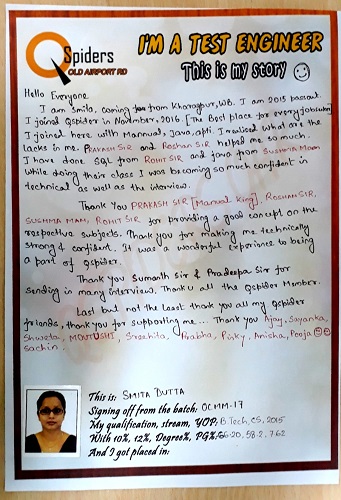 QSpiders
OLD AIRPORT RD
I'M A TEST ENGINEER
This is my story
Hello Everyone
I am Smita, coming from Kharagpur, WB. I am 2015 passout.
I joined Qspider in November, 2016. [The Best place for every jobseeker]
I joined here with Mannual, Java, apti. I realised what are the
lacks in me. PRAKASH SIR and Roshan SIR helped me so much.
I have done SQL from ROHIT SIR and java from SUSHMA Mam
while doing their class I was becoming so much confident in
technical as well as the interview.
Thank You PRAKASH SIR [Manual King], ROSHAN SIR,
SUSHMA MAM, ROHIT SIR for providing a good concept on the
respective subjects. Thank you for making me technically
strong & confident. It was a wonderful experience to being
a part of Qspider.
Thank You Sumanth Sir & Pradeepa Sir for
sending in many interview. Thank u all the Qspider Member.
Last but not the least thank you all my Qspider
friends, thank you for supporting me... Thank you Ajay, Sayanka,
Shweta, MOUTUSHI, Sreehita, Prabha, Pinky, Anisha, Pooja
Sachin.
This is: SMITA DUTTA
Signing off from the batch: QCMM-17
My qualification, stream, YOP: B.Tech, CS, 2015
With 10%, 12%, Degree%, PG%: 66.20, 58.2, 7.62
And I got placed in: